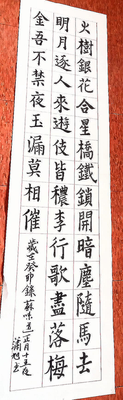 火樹銀花合星橋鐵鎖開暗塵隨馬去
明月逐人來遊伎皆穠李行歌盡落梅
金吾不禁夜玉漏莫相催
歲在癸卯錄蘇味道正月十五夜